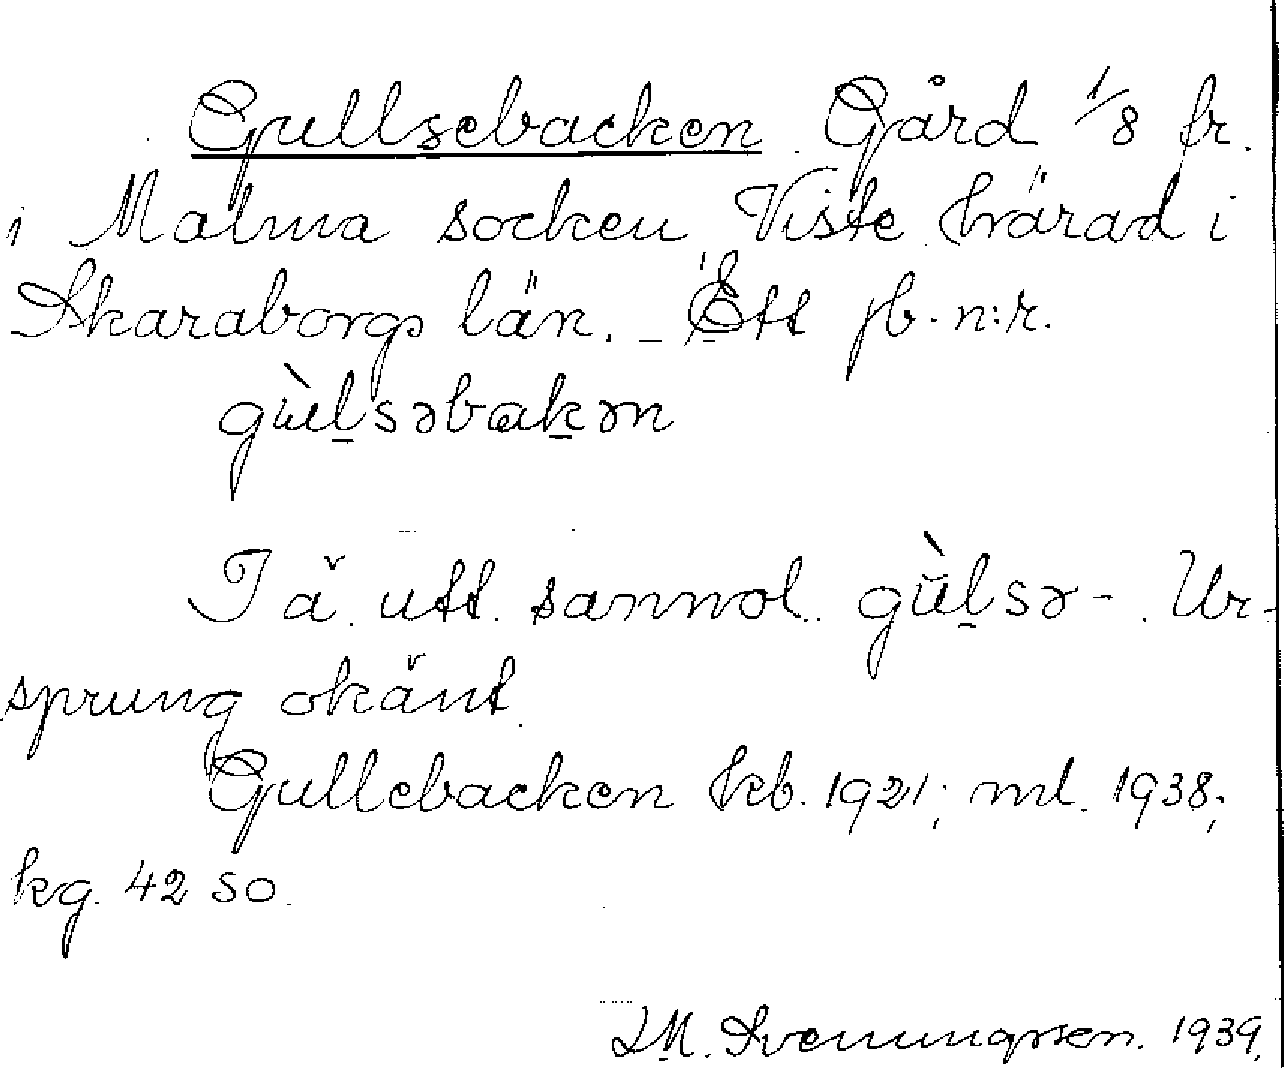 Gullsebacken. Gård 1/8 fr.
i Malma socken Viste härad i
Skaraborgs län. _ Ett jb. n:r.
gù̀lsəbakən
I ä. utt. sannol. gùlsə-. Ur-
sprung okänt.
Gullebacken kb. 1921; ml. 1938;
kg. 42 so.
Svenungsson. 1939.